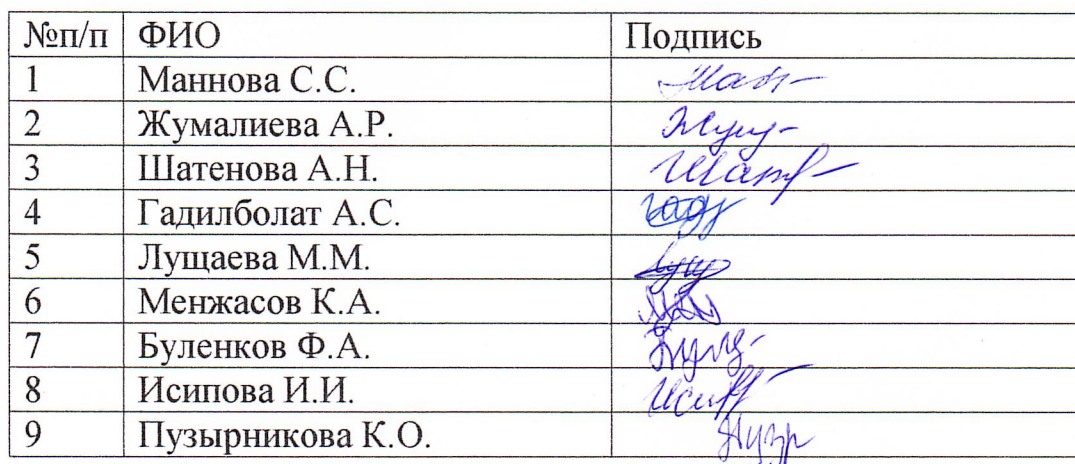 №п/п ФИО Подпись
1 Маннова С.С.
2 Жумалиева А.Р.
3 Шатенова А.Н.
4 Гадилболат А.С.
5 Лущаева М.М.
6 Менжасов К.А.
7 Буленков Ф.А.
8 Исипова И.И.
9 Пузырникова К.О.